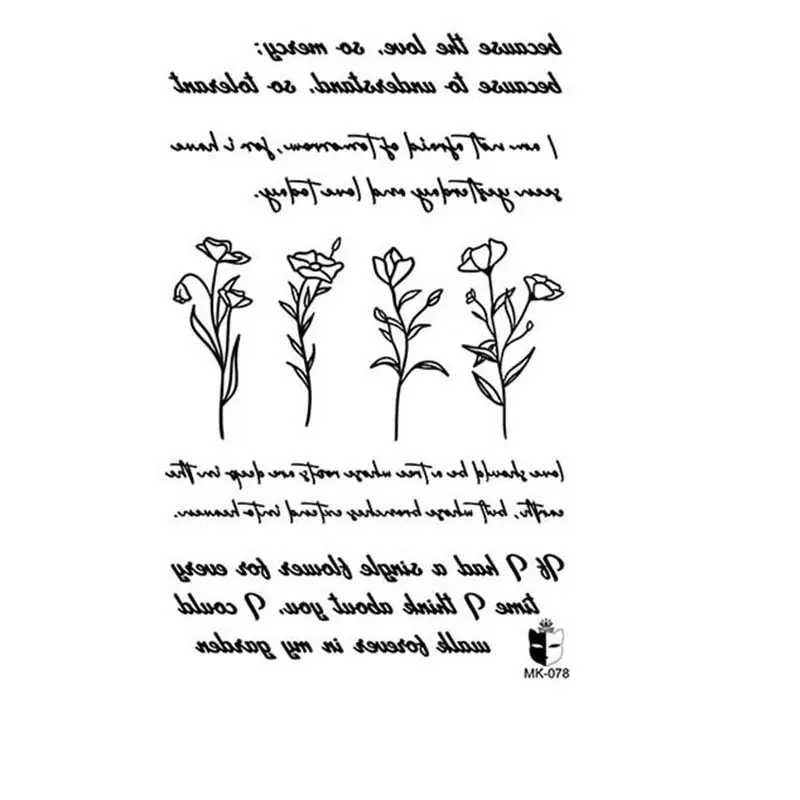 because the love, so mercy;
because to understand, so tolerant
I am not afraid of tomorrow, for i have
seen yesterday and love today.
love should be a tree whose roots are deep in the
earth, but whose branches extend into heaven.
If I had a single flower for every
time I think about you, I could
walk forever in my garden
MK-078